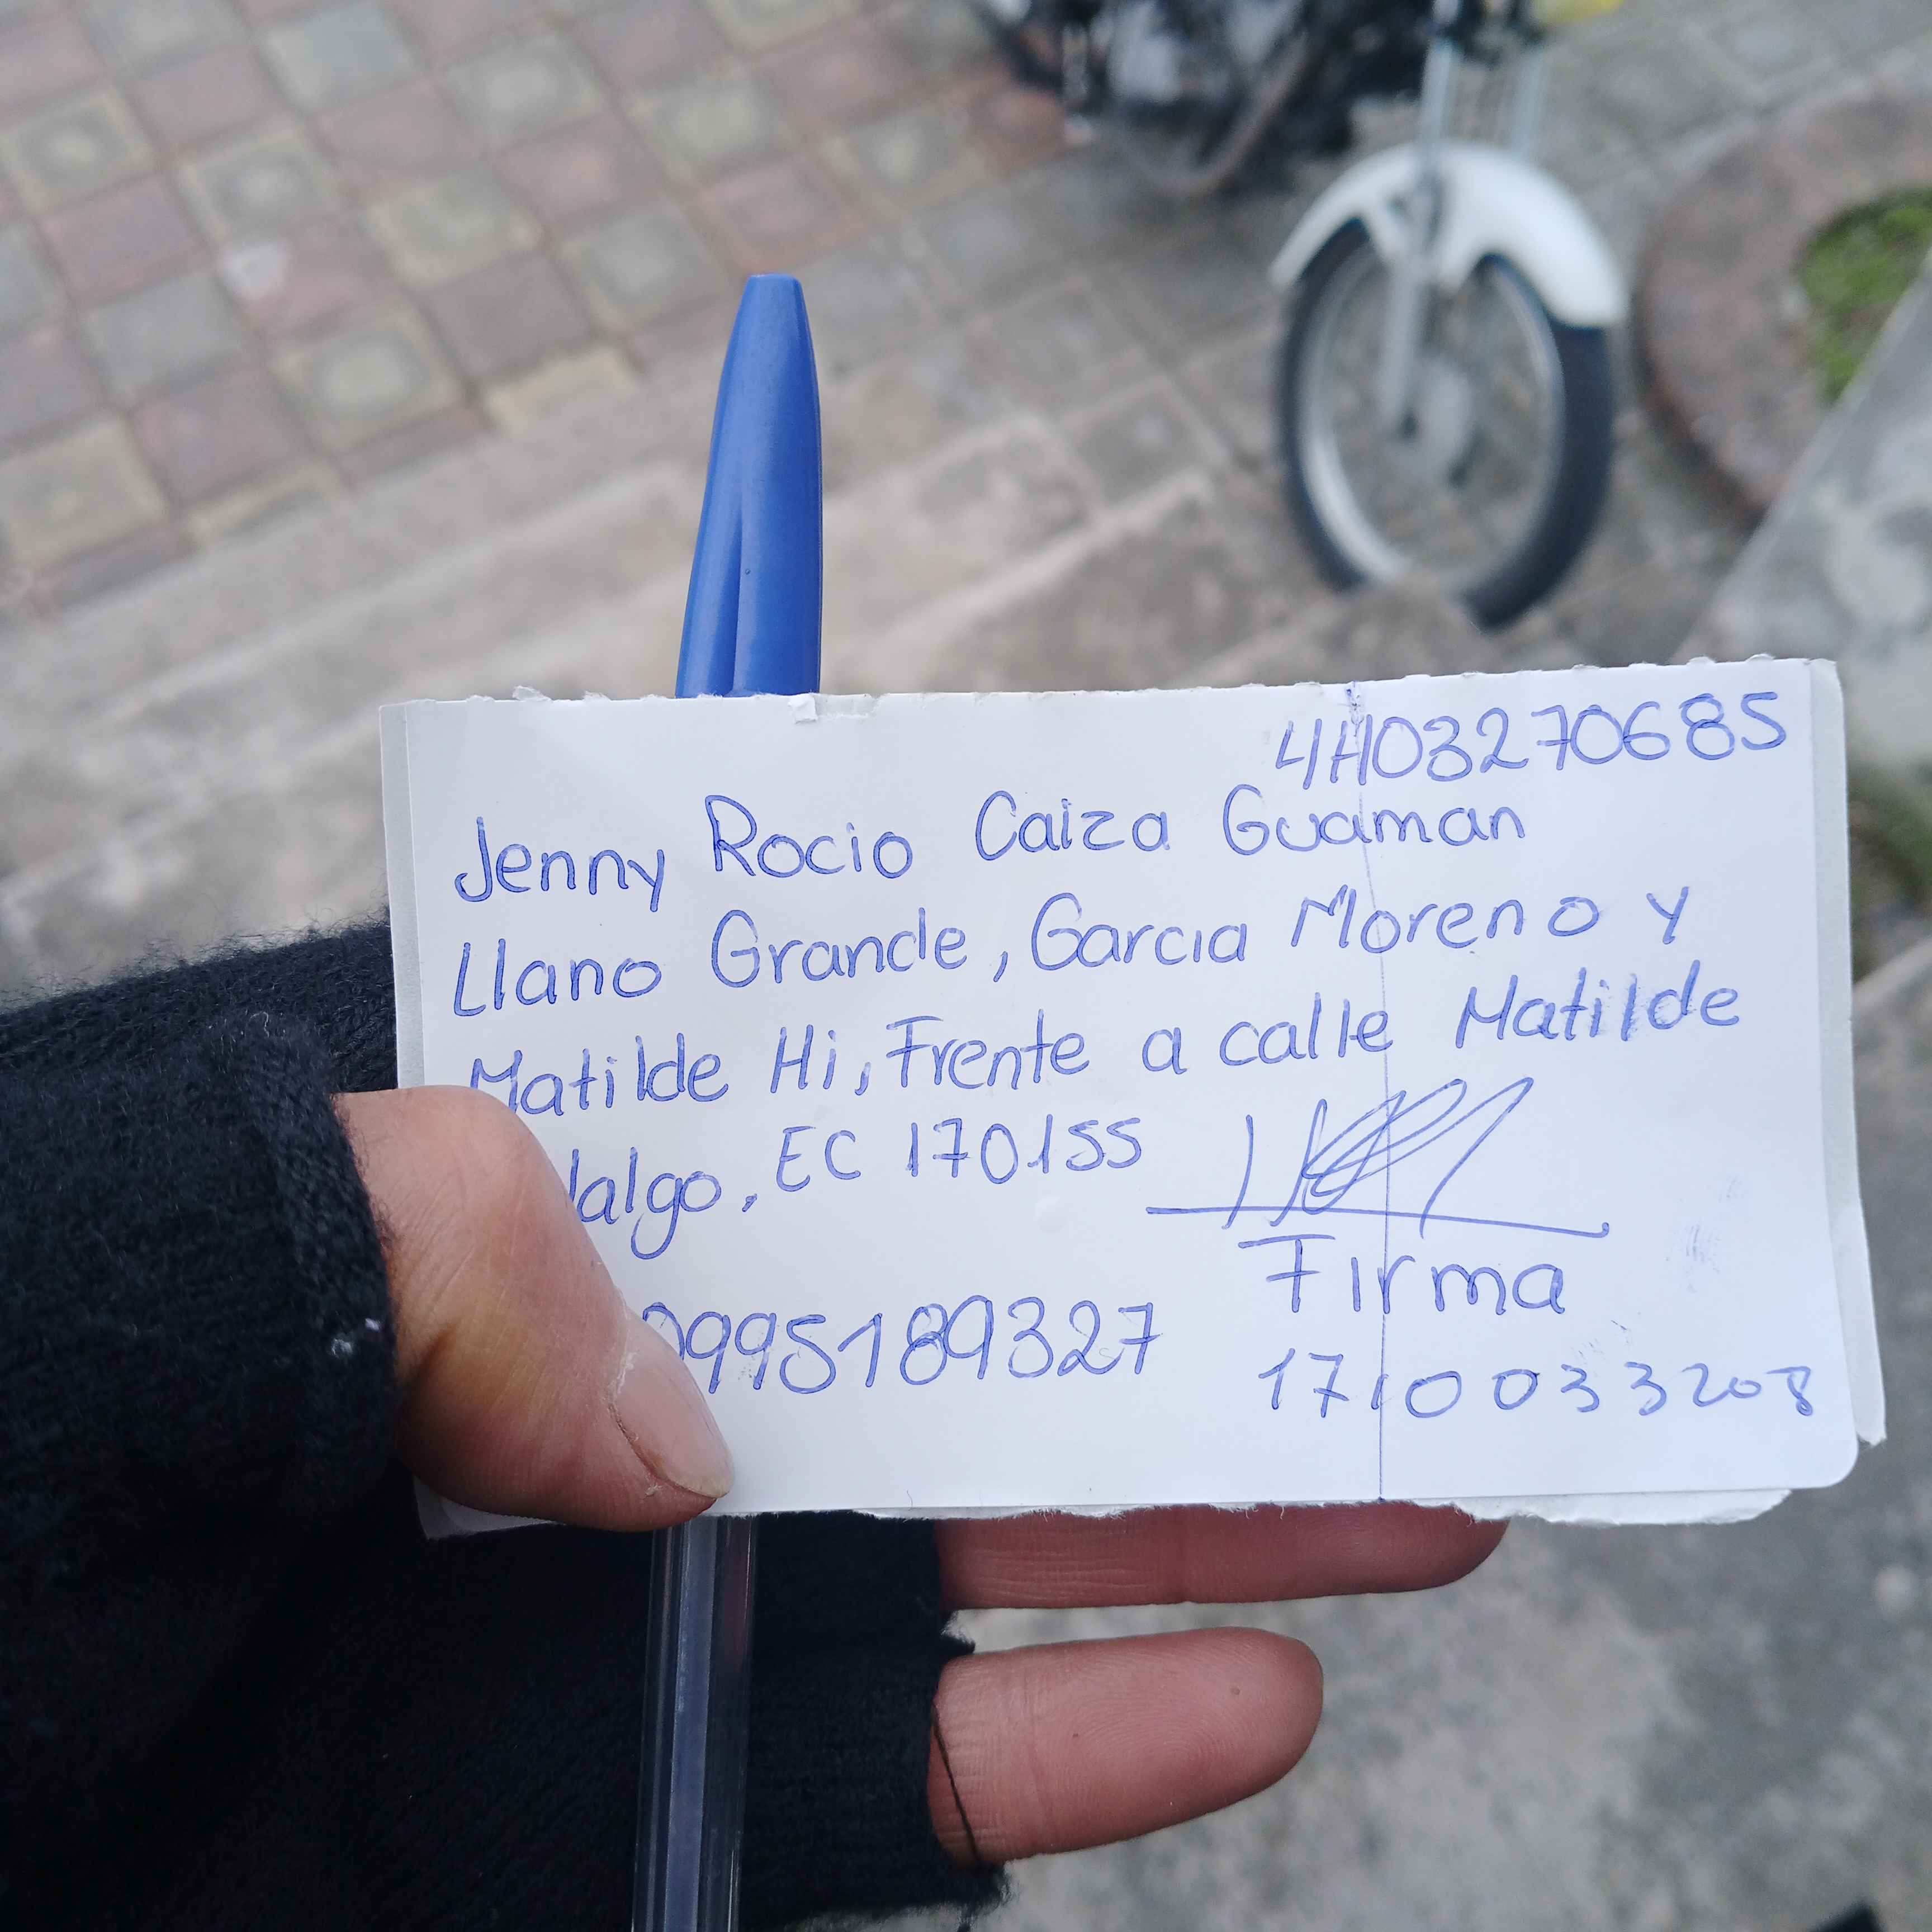 4H03270685
Jenny Rocio Caiza Guaman
Llano Grande, Garcia Moreno y
Matilde Hi, Frente a calle Matilde
dalgo, EC 170155
Firma
0995189327
1710033208